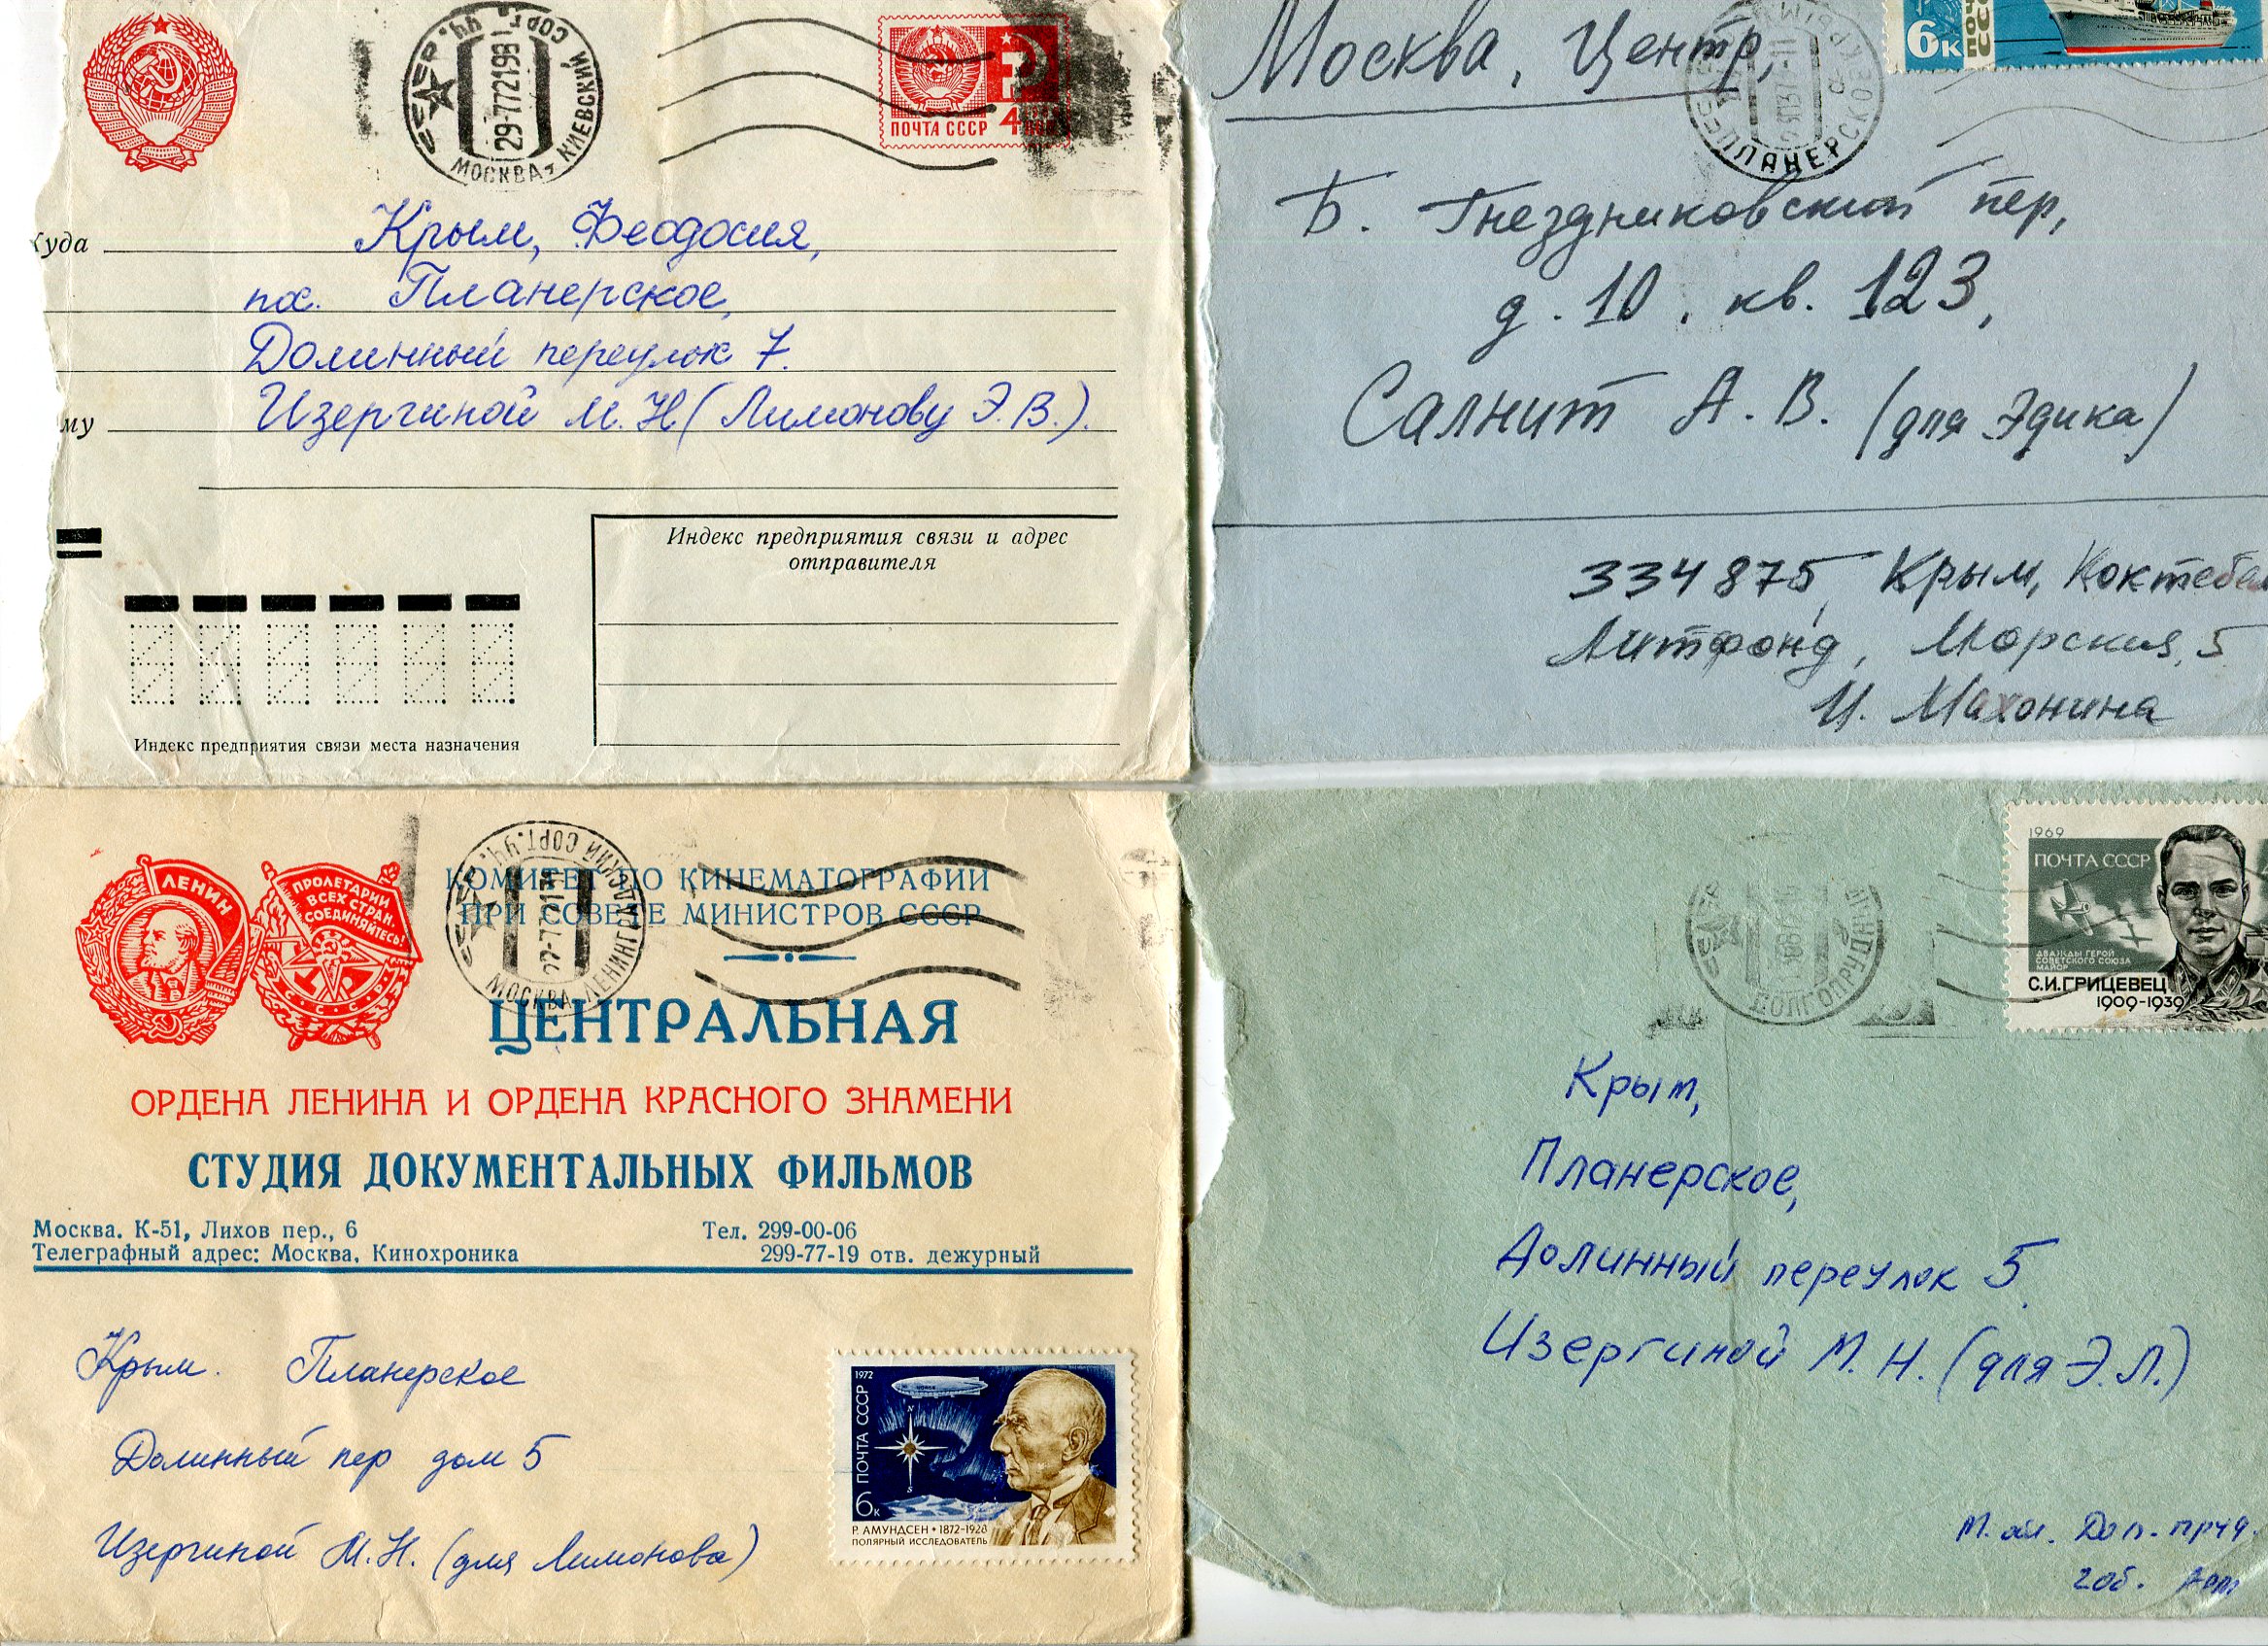 СССР
МОСКВА-КИЕВСКИЙ СОРТ. УЧ.
29-7721981
ПОЧТА СССР
Куда Крым, Феодосия,
пос. Планерское,
Долинный переулок 7.
му Изергиной М. Н (Лимонову Э. В.).
Индекс предприятия связи и адрес
отправителя
Индекс предприятия связи места назначения
Москва, Центр,
6к
ПЛАНЕРСКОЕ КРЫМ
Б. Гнездниковский пер,
д. 10, кв. 123,
Салнит А. В. (для Эдика)
334875, Крым, Коктебел
Литфонд, Морская, 5
И. Махонина
ЛЕНИН
ПРОЛЕТАРИИ
ВСЕХ СТРАН,
СОЕДИНЯЙТЕСЬ!
МОСКВА ЛЕНИНГРАДСКИЙ СОРТ. УЧ.
КОМИТЕТ ПО КИНЕМАТОГРАФИИ
ПРИ СОВЕТЕ МИНИСТРОВ СССР
ЦЕНТРАЛЬНАЯ
ОРДЕНА ЛЕНИНА И ОРДЕНА КРАСНОГО ЗНАМЕНИ
СТУДИЯ ДОКУМЕНТАЛЬНЫХ ФИЛЬМОВ
Москва. К-51, Лихов пер., 6 Тел. 299-00-06
Телеграфный адрес: Москва, Кинохроника 299-77-19 отв. дежурный
Крым. Планерское
Долинный пер дом 5
Изергиной М.Н. (для Лимонова)
1972
ПОЧТА СССР
6к
N
S
Р. АМУНДСЕН • 1872-1928
ПОЛЯРНЫЙ ИССЛЕДОВАТЕЛЬ
ДОЛГОПРУДНЫЙ
1969
ПОЧТА СССР
ДВАЖДЫ ГЕРОЙ
СОВЕТСКОГО СОЮЗА
МАЙОР
С.И.ГРИЦЕВЕЦ
1909-1939
Крым,
Планерское,
Долинный переулок 5
Изергиной М. Н. (для Э.Л.)
Дол.-пруд.